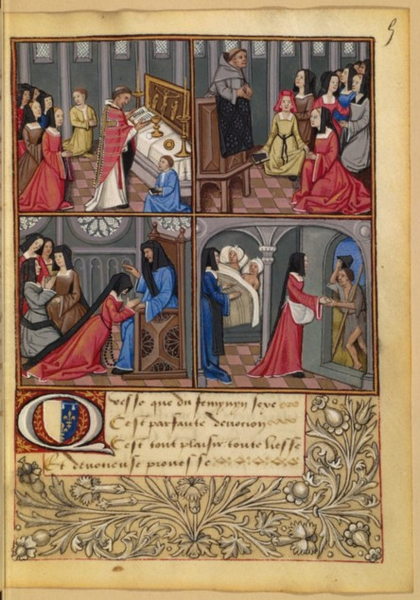 5
Quesse que du femynyn sexe
Cest parfaite deuocion
Cest tout plaisir toute liesse
Et prouesse